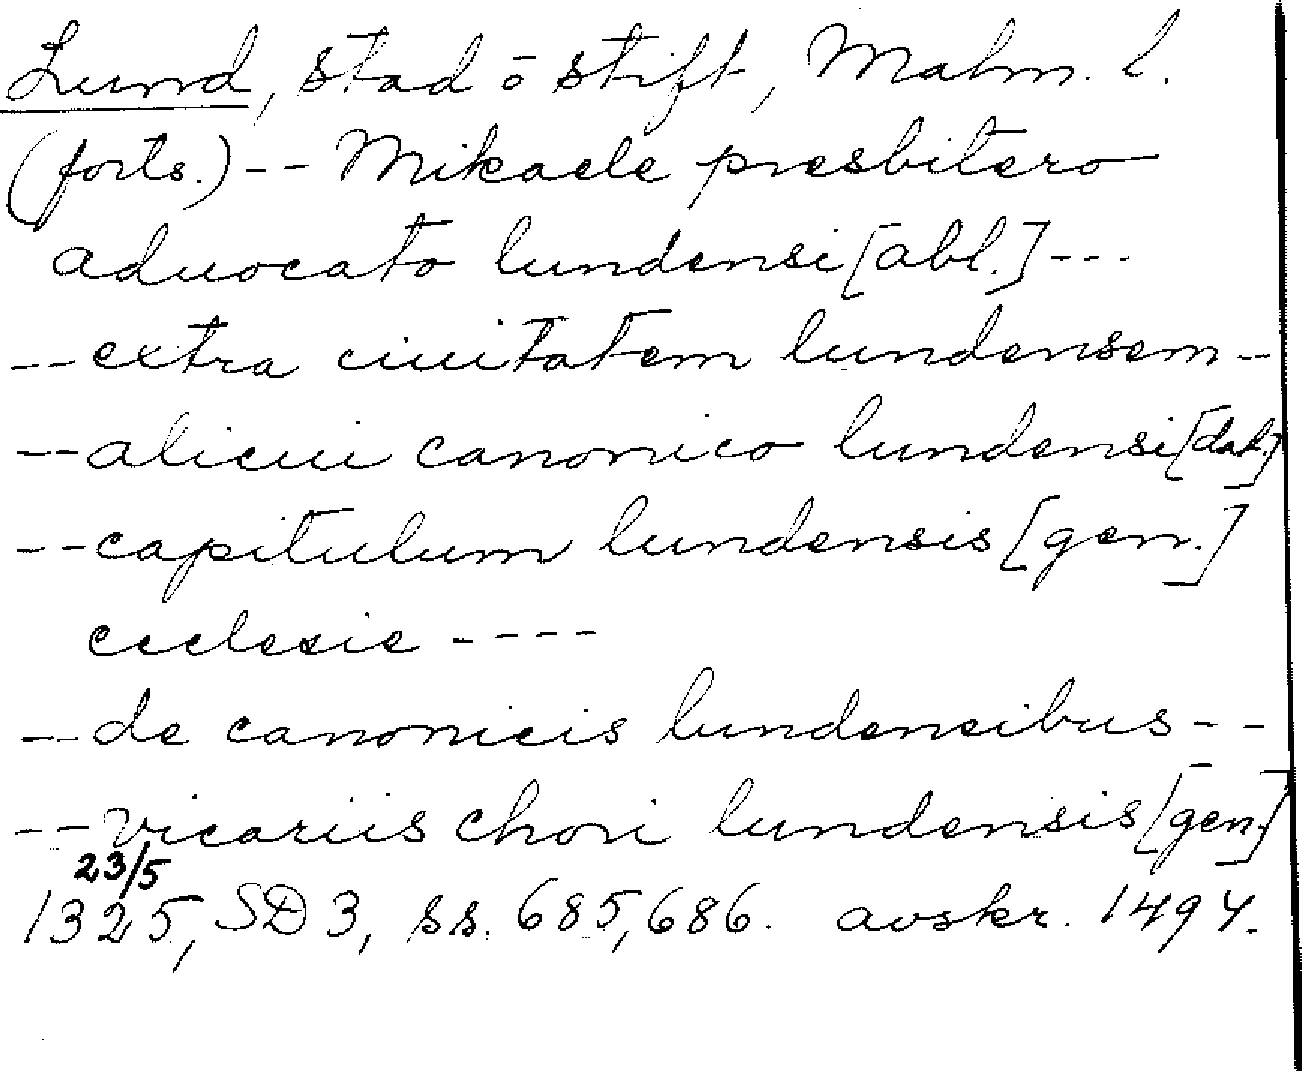 Lund, stad ō stift, Malm. l.
(forts.) -- Mikaele presbitero
aduocato lundensi [abl.] ---
-- extra ciuitatem lundensem --
-- alicui canonico lundensi [dat.]
-- capitulum lundensis [gen.]
ecclesie ----
-- de canonicis lundensibus --
-- vicariis chori lundensis [gen.]
23/5
1325, SD 3, ss. 685, 686. avskr. 1494.